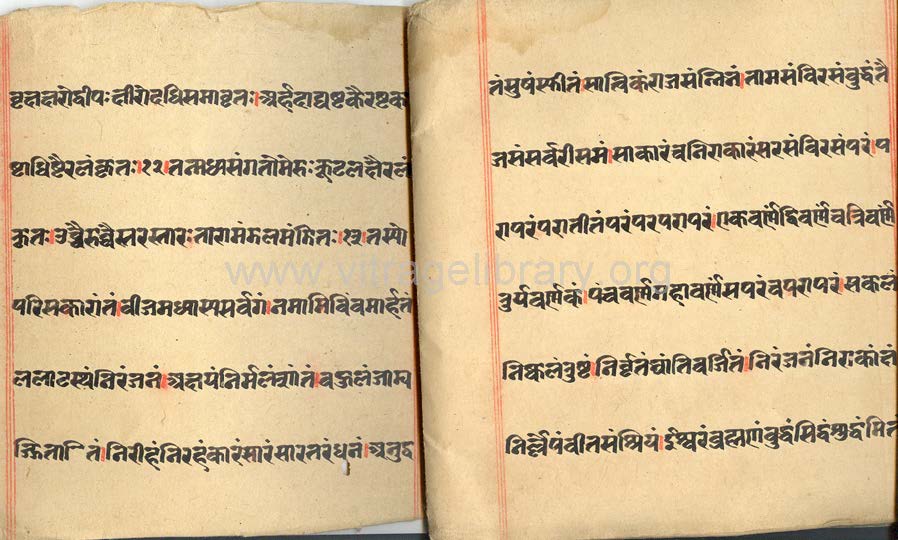 वृक्षक्षरोद्वीपः क्षीरोदधिसमावृतः।अर्हदाद्यष्टकैरष्टका
ष्टाधिष्टैरलंकृतः।११।तन्मध्यसंगतोमेरुःकुटलक्षैरलं
कृतः।उच्चैरुच्चैस्तरस्तारःतारामंडलमंडितः।१२।तस्यो
परिसकारांतं।बीजमध्यास्यसर्वगं।नमामिबिंबमार्हतं
ललाटस्थंनिरंजनं।अक्षयंनिर्मलंशांतं।बहुलंजाड्य
निरीहंनिरहंकारंसारंसारतरंधनं।अनुद्ध
तंसुषंस्फीतं।सात्विकंराजसंन्निनं।तामसंविरसंबुद्धंतै
जसंसर्वरीसमं।साकारंचनिराकारंसरसंविरसंपरं।प
रापरंपरातीतंपरंपरपरापरं।एकवर्णंद्विवर्णंचत्रिवर्णं
तुर्यवर्णकं।पंचवर्णंमहावर्णंसपरंचपरापरं।सकलं
निष्कलंतुष्टंनिर्वृतंभ्रांतिवर्जितं।निरंजनंनिराकांक्षं
निर्ल्लेपंवीतसंश्रियं।ईश्वरंब्रह्माणंबुद्धंसिद्धंशुद्धंमितं
www.vitragelibrary.org